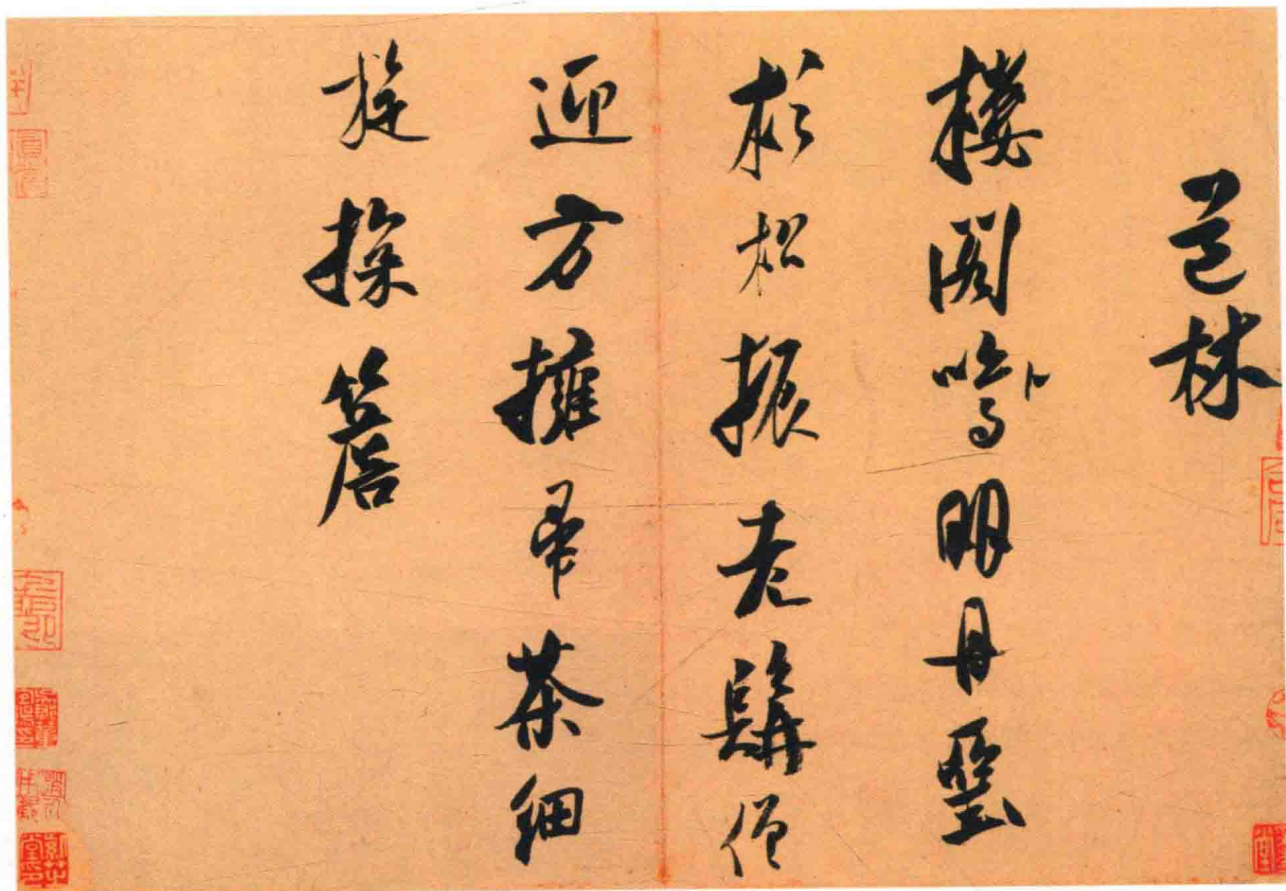 道林
樓閣鳴明丹堊
杉松振老髯僧
迎方擁帚茶細
旋探簷